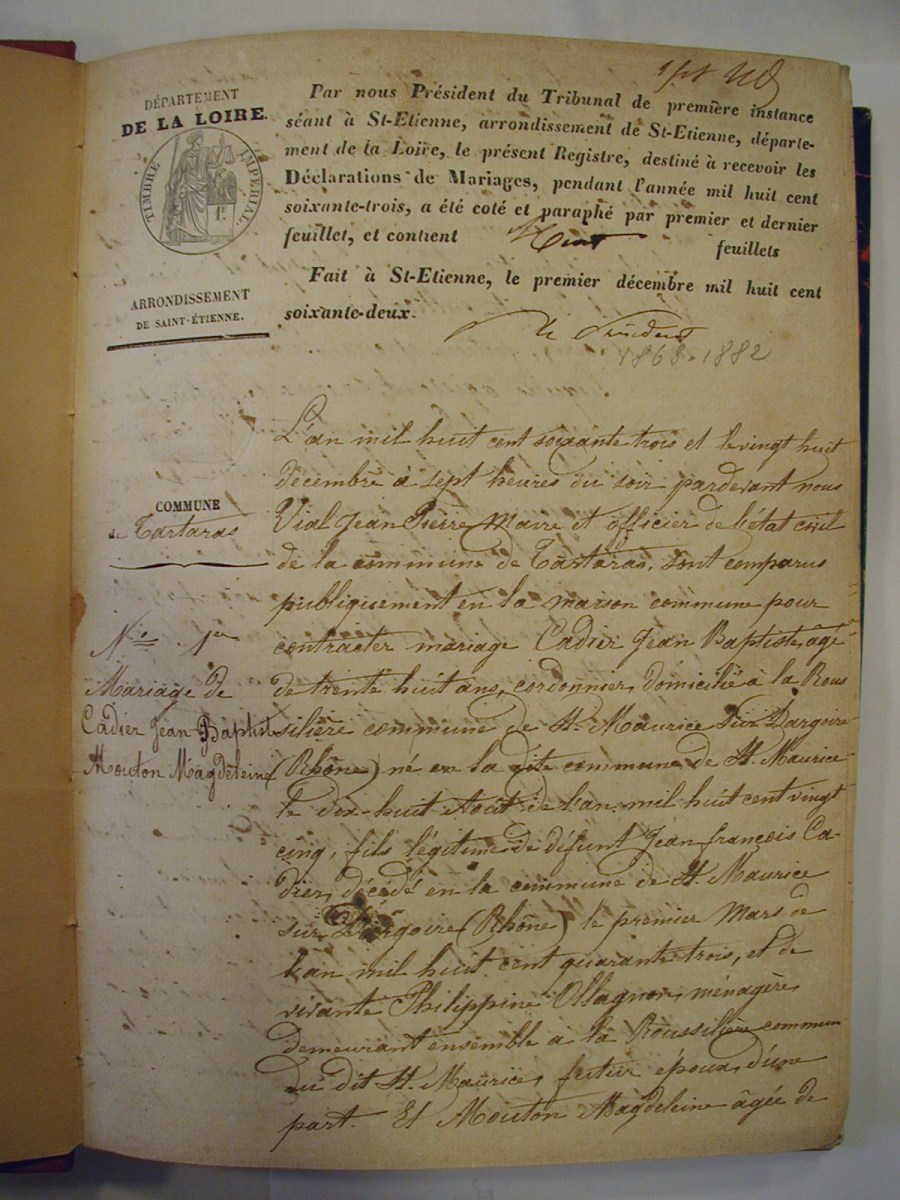 DÉPARTEMENT
DE LA LOIRE.
TIMBRE IMPÉRIAL
ARRONDISSEMENT
DE SAINT-ÉTIENNE.
Par nous Président du Tribunal de première instance
séant à St-Etienne, arrondissement de St-Etienne, départe-
ment de la Loire, le présent Registre, destiné à recevoir les
Déclarations de Mariages, pendant l'année mil huit cent
soixante-trois, a été coté et paraphé par premier et dernier
feuillet, et contient feuillets
Fait à St-Etienne, le premier décembre mil huit cent
soixante-deux.
Le Président
1863-1882
COMMUNE
de Tartaras
N° 1er
Mariage de
Cadier Jean Baptist
Mouton Magdeleine
L'an mil huit cent soixante trois et le vingt huit
décembre à sept heures du soir pardevant nous
Vial Jean Pierre Maire et officier de l'état civil
de la commune de Tartaras, sont comparus
publiquement en la maison commune pour
contracter mariage Cadier Jean Baptiste, âgé
de trente huit ans, cordonnier, domicilié à la Rous
silière commune de St. Maurice sur Dargoire
(Rhône) né en la dite commune de St. Maurice
le dix huit Aout de l'an mil huit cent vingt
cinq, fils légitime de défunt Jean françois Ca-
dier, décédé en la commune de St. Maurice
sur Dargoire (Rhône) le premier Mars de
l'an mil huit cent quarante trois, et de
vivante Philippine Ollagnon, ménagère,
demeurant ensemble à la Roussilière commun
du dit St. Maurice, futur époux, d'une
part. Et Mouton Magdeleine âgée de